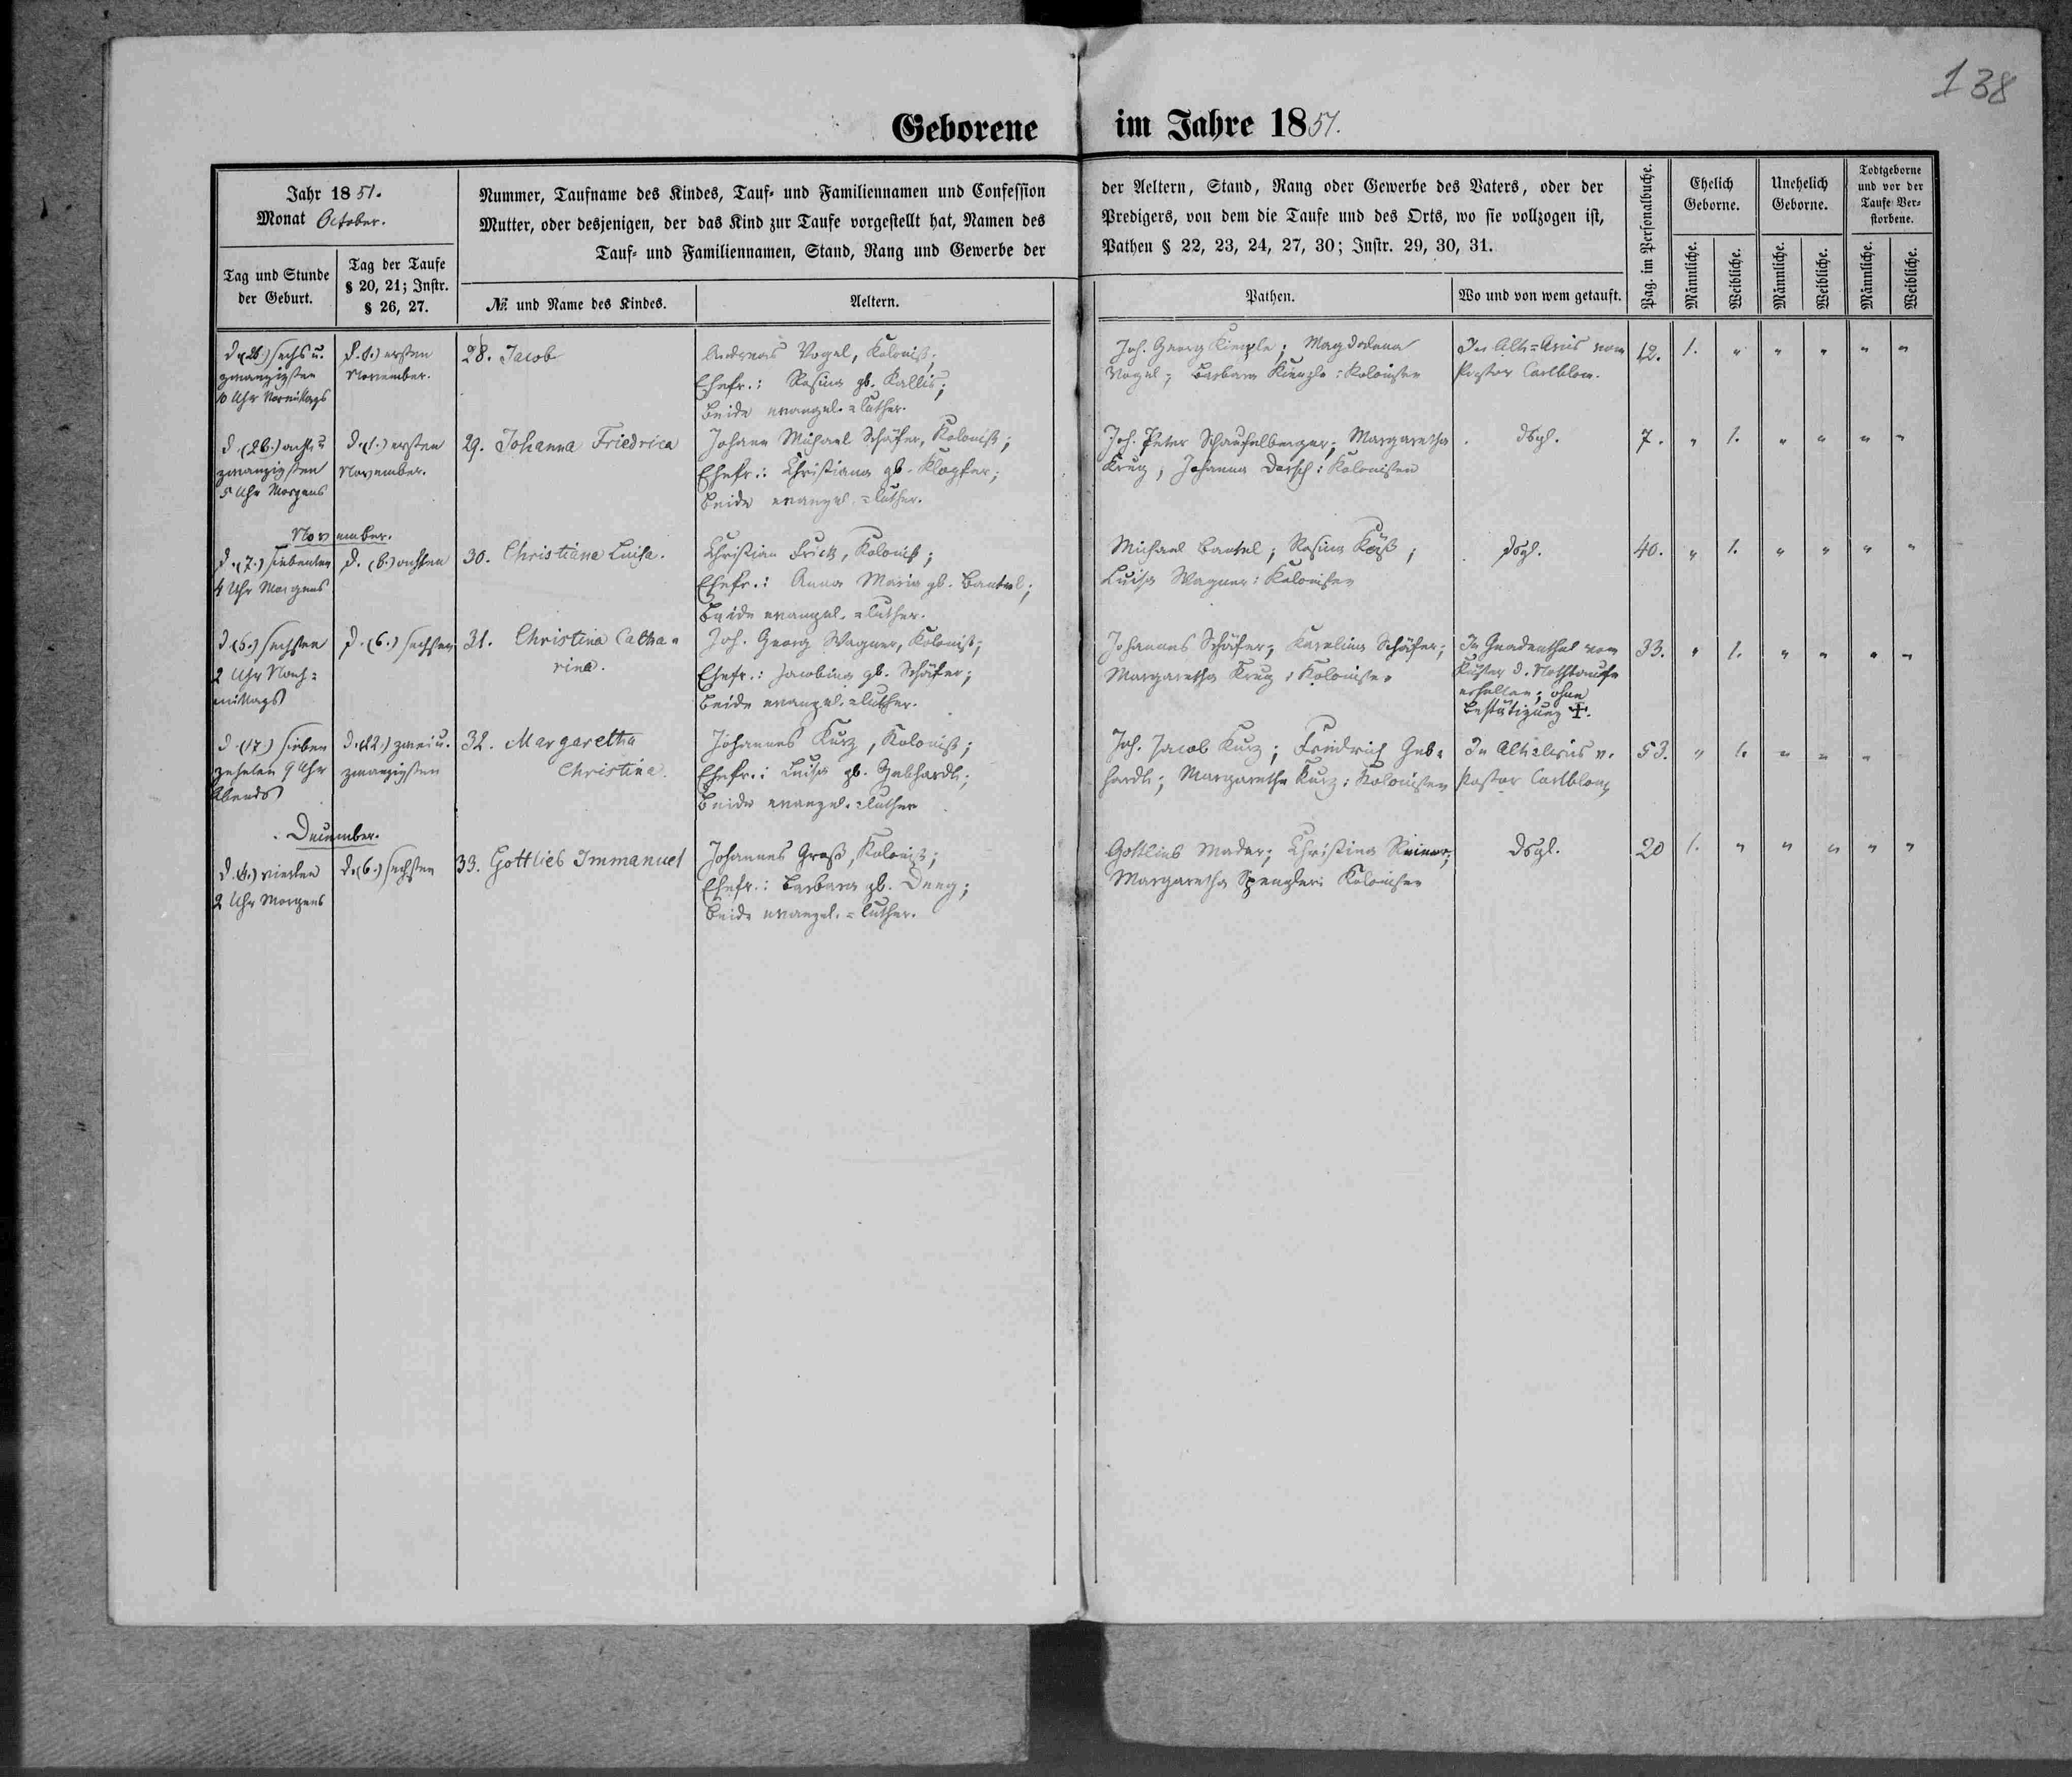 138
Geborene im Jahre 1851.
Jahr 1851.
Monat October.
Nummer, Taufname des Kindes, Tauf- und Familiennamen und Confession der Aeltern, Stand, Rang oder Gewerbe des Vaters, oder der
Mutter, oder desjenigen, der das Kind zur Taufe vorgestellt hat, Namen des Predigers, von dem die Taufe und des Orts, wo sie vollzogen ist,
Tauf- und Familiennamen, Stand, Rang und Gewerbe der Pathen § 22, 23, 24, 27, 30; Instr. 29, 30, 31.
Tag und Stunde
der Geburt.
Tag der Taufe
§ 20, 21; Instr.
§ 26, 27.
№ und Name des Kindes.
Aeltern.
Pathen.
Wo und von wem getauft.
Pag. im Personalbuche.
Ehelich
Geborne.
Unehelich
Geborne.
Todtgeborne
und vor der
Taufe Ver-
storbene.
Männliche.
Weibliche.
Männliche.
Weibliche.
Männliche.
Weibliche.
d. (26.) sechs u.
zwanzigsten
10 Uhr Vormittags
d. (1.) ersten
November.
28. Jacob
Andreas Vogel, Kolonist;
Ehefr.: Rosina gb. Kallis;
beide evangel.=luther.
Joh. Georg Kienzle; Magdalena
Vogel; Barbara Kienzle: Kolonisten
In Alt= vom
Pastor Carlblom.
12. 1. " " " " "
d. (28.) acht u
zwanzigsten
5 Uhr Morgens
d. (1.) ersten
November.
29. Johanna Friedrica
Johann Michael Schäfer, Kolonist;
Ehefr.: Christiana gb. Klopfer;
beide evangel.=luther.
Joh. Peter Schaufelberger; Margaretha
Krug; Johanna Dorsch: Kolonisten
dsgl.
7. " 1. " " " "
November.
d. (7.) siebenten
4 Uhr Morgens
d. (8.) achten
30. Christiana Luisa.
Christian Frick, Kolonist;
Ehefr.: Anna Maria gb. Bantel;
beide evangel.=luther.
Michael Bantel; Rosina;
Luisa Wagner: Kolonisten
dsgl.
40. " 1. " " " "
d. (6.) sechsten
2 Uhr Nach=
mittags
d. (6.) sechsten
31. Christina Catha=
rina.
Joh. Georg Wagner, Kolonist;
Ehefr.: Jacobina gb. Schäfer;
beide evangel.=luther.
Johannes Schäfer; Karolina Schäfer;
Margaretha Krug: Kolonisten
In Gnadenthal vom
Küster d. Nothtaufe
erhalten; ohne
Bestätigung ✝.
33. " 1. " " " "
d. (17.) sieben
zehnten 9 Uhr
Abends
d. (22.) zwei u.
zwanzigsten
32. Margaretha
Christina.
Johannes Kurz, Kolonist;
Ehefr.: Luisa gb. Gebhardt;
beide evangel.=luther
Joh. Jacob Kurz; Friedrich Geb=
hardt; Margaretha Kurz: Kolonisten
In Alt= v.
Pastor Carlblom
53. " 1. " " "
December.
d. (4.) vierten
2 Uhr Morgens
d. (6.) sechsten
33. Gottlieb Immanuel
Johannes Groß, Kolonist;
Ehefr.: Barbara gb.;
beide evangel.=luther.
Gottlieb Mader; Christina Reimer;
Margaretha Spengler: Kolonisten
dsgl.
20 1. " " " " "